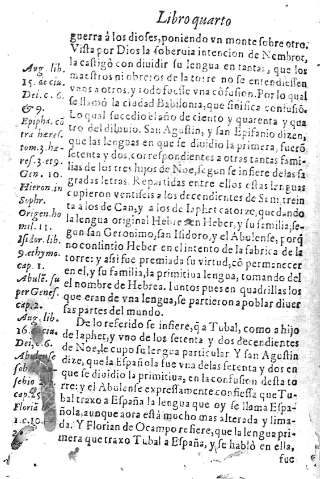 Libro quarto
guerra à los dioses, poniendo vn monte sobre otro.
Vista por Dios la soberuia intencion de Nembrot,
la castigò con diuidir su lengua en tantas, que los
maestros ni obreros de la torre no se entendiessen
vnos a otros, y todo fuesse vna cõfusion. Por lo qual
se llamò la ciudad Babilonia, que significa confusiõ.
Lo qual sucedio el año de ciento y quarenta y qua
tro del diluuio. San Agustin, y san Epifanio dizen,
que las lenguas en que se diuidio la primera, fuerõ
setenta y dos, correspondientes a otras tantas fami-
lias de los tres hijos de Noe, segun se infiere de las sa
gradas letras. Repartidas entre ellos estas lenguas
cupieron veintiseis a los decendientes de Sam, trein
ta a los de Can, y a los de Iaphet catorze, quedando
la lengua original Hebrea en Heber, y su familia, se-
gun san Geronimo, san Isidoro, y el Abulense, porq̃
no consintio Heber en el intento de la fabrica de la
torre: y assi fue premiada su virtud, cõ permanecer
en el, y su familia, la primitiua lengua, tomando del
el nombre de Hebrea. Iuntos pues en quadrillos los
que eran de vna lengua, se partieron a poblar diuer
sas partes del mundo.
De lo referido se infiere, q̃ a Tubal, como a hijo
de Iaphet, y vno de los setenta y dos decendientes
de Noe, le cupo lengua particular. Y san Agustin
dize, que la Española fue vna de las setenta y dos en
que se diuidio la primitiua, en la confusion desta to
rre: y el Abulense expressamente confiessa que Tu
bal traxo a España la lengua que oy se llama Espa-
ñola, aunque aora està mucho mas alterada y lima-
da. Y Florian de Ocampo refiere, que la lengua pri-
mera que traxo Tubal a España, y se hablò en ella,
fue
Aug. lib.
15. de ciu.
Dei. c. 6.
& 9.
Epipha. cõ
tra heres.
tom. 3. he-
res. 3.
Gen. 10.
Hieron. in
Sophr.
Origen. ho
mil. 11.
Isidor. lib.
9. ethymo.
cap. 1.
Abulē. su
per Genes.
cap. 2.
Aug. lib.
16.
Dei, c. 6.
Abulense
sebio
cap. 25
Floriã
1. c. 10.